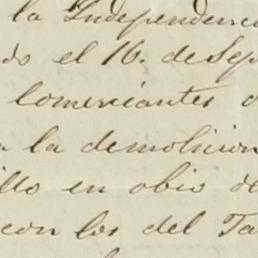 la Independenci
do el 16. de Sep
comerciantes
la demolicion
illo en obio de
con los del Ta